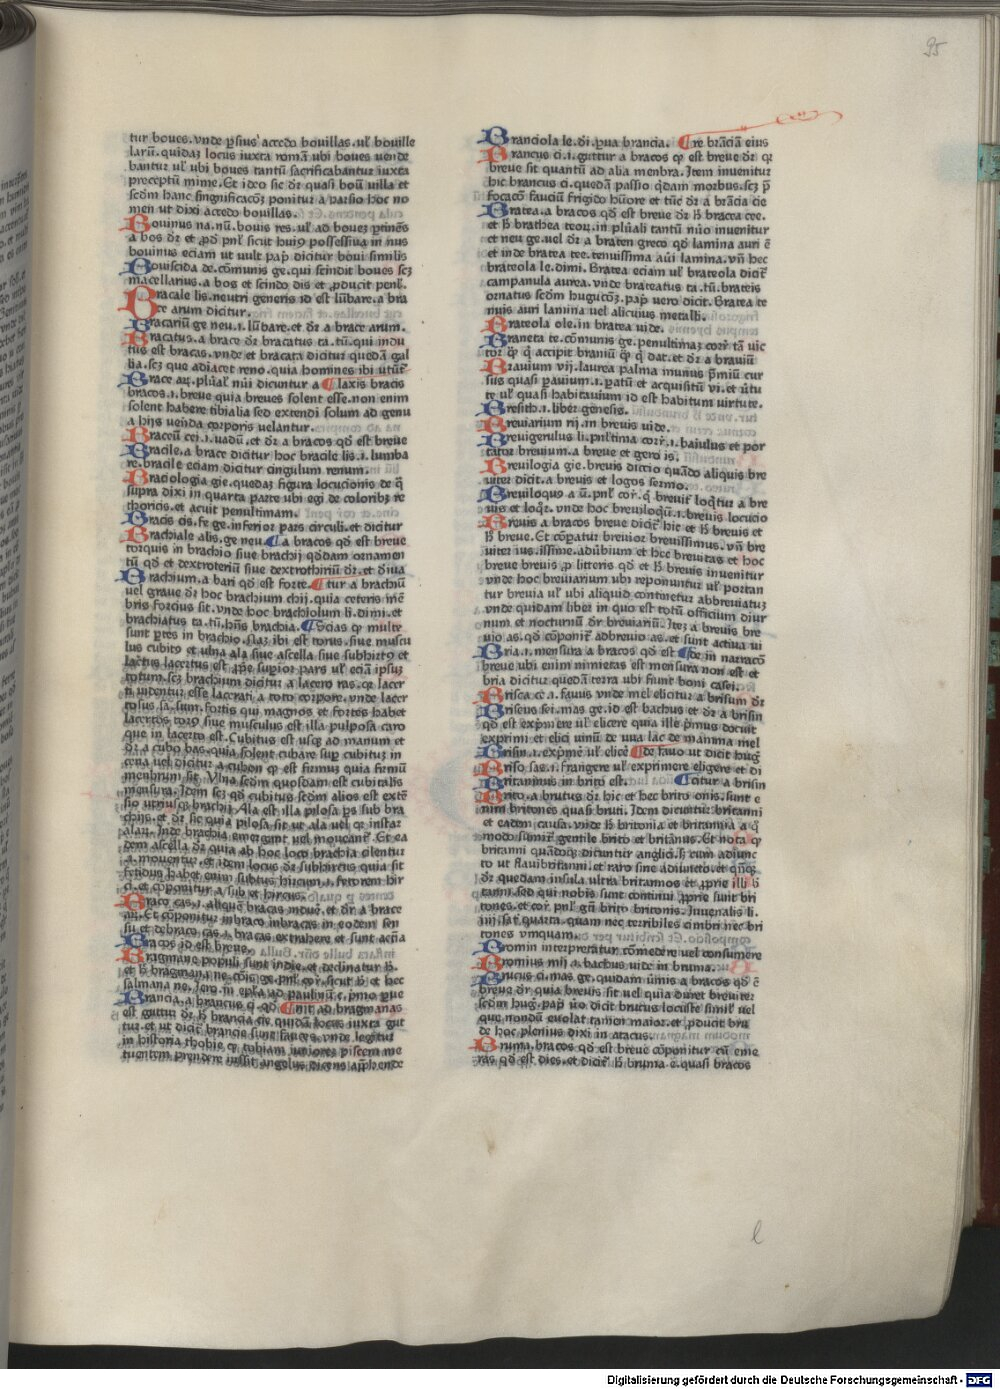 95
tur boues. vnde ꝓsius accedo bouillas. uł bouille
larū. quidaȝ locus iuxta romā ubi boues uende
bantur uł ubi boues tantū sacrificabantur iuxta
preceptū mime. Et ideo sic dr̄ quasi boū uilla et
scdm̄ hanc singnificacōȝ ponitur a
men ut dixi accedo bouillas.
Bouinus na. nū. bouis res. uł ad boueȝ ꝑtinēs
a bos dr̄ et ꝓd pnł sicut possessiua in nus
bouinus eciam ut uult pap̄ dicitur boui similis
Bouiscida de. cōmunis ge. qui scindit boues scȝ
macellarius. a bos et scindo dis et ꝓducit penł.
Bracale lis. neutri generis id est lūbare. a bra
ce arum dicitur.
Bracariū ge neu. i. lūbare. et dr̄ a brace arum.
Bracatus. a brace dr̄ bracatus ta. tū. qui indu
tus est bracas. vnde et bracata dicitur quedā gal
lia. scȝ que adiacet reno. quia homines ibi utūt̄
Brace aꝝ. plūał nūi dicuntur a ¶ laxis bracis
bracos. i. breue quia breues solent esse. non enim
solent habere tibialia sed extendi solum ad genu
a hijs uenda corporis uelantur.
Braceū cei. i. uadū. et dr̄ a bracos qd̄ est breue
Bracile. a brace dicitur hoc bracile lis. i. lumba
re. bracile eciam dicitur cingulum renum.
Braciologia gie. quedaȝ figura locucionis de q̄
supra dixi in quarta parte ubi egi de coloribȝ re
thoricis. et acuit penultimam.
Bracis cis. fe ge. inferior pars circuli. et dicitur
Brachiale alis. ge neu ¶ a bracos qd̄ est breue
torquis in brachio siue brachij qd̄dam ornamen
tū qd̄ et dextroteriū siue dextrothiriū dr̄. et
Brachium. a bari qd̄ est forte. ¶ tur a brachiū
uel graue dr̄ hoc brachium chij. quia ceteris mē
bris forcius sit. vnde hoc brachiolum li. dimi. et
brachiatus ta. tū. hn̄s brachia. ¶ Scias ꝙ multe
sunt ꝑtes in brachio. Naȝ ibi est torus. siue muscu
lus cubitꝰ et ulna ala siue ascella siue subhirtꝰ et
lac̄tus lacertus est ꝓpe suꝑior pars uł eciā ipsuȝ
totum. scȝ brachium dicitur a lacero ras. qꝛ lacer
ti uidentur esse lacerati a toto corpore. vnde lacer
tosus sa. sum. fortis qui magnos et fortes habet
lacertos torꝰ siue musculus est illa pulposa caro
que in lacerto est. Cubitus est usqȝ ad manum et
dr̄ a cubo bas. quia solent cubare suꝑ cubituȝ in
cena uel dicitur a cubon ꝙ est firmuȝ quia firmū
menbrum sit. Vlna scdm̄ quosdam est cubitalis
mensura. Idem scȝ qd̄ cubitus scdm̄ alios est extē
sio utriusqȝ brachij. Ala est illa pilosa ps̄ sub bra
chijs. et dr̄ sic quia pilosa sit ut ala uel qꝛ instar
alaꝝ. Inde brachia emergant uel moueant̄. Et ea
dem ascella dr̄ quia ab hoc loco brachia cilentur
.i. mouentur. et idem locus dr̄ subhircus quia sit
fetidus habet enim subtus hircum. i. fetorem hir
ci. et cōponitur a sub et hircus.
Braco cas. i. aliquē bracas induē. et dr̄ a brace
aꝝ. Et cōponitur inbraco inbracas in eodem sen
su et debraco cas. i. bracas extrahere et sunt actia
Bracos id est breue.
Bragmane populi sunt indie. et declinatur h̄.
et h̄ bragmana ne. cōis ge. pnł coꝛ̄. sicut h̄ et hec
salmana ne. Jero. in epła ad paulinū. c. pmo ꝓue
Brancia. a brancus q. qd̄ ¶ nit ad bragmanas
est guttur dr̄ h̄ brancia cie quidā locus iuxta gut
tur. et ut dicit̄ brancie sunt fauces. vnde legitur
in historia thobie ꝙ tobiam iuniorē piscem me
tuentem prendere iussit angelus dicens apphende
Branciola le. di. ꝓua brancia. ¶ re brāciā eius
Brancus ci. i. guttur a bracos ꝙ est breue dr̄ qꝛ
breue sit quantū ad alia menbra. Item inuenitur
hic brancus ci. quedā passio qd̄am morbus. scȝ ꝓ
focacō fauciū frigido hūore et tūc dr̄ a brācia cie
Bratea. a bracos qd̄ est breue dr̄ h̄ bracea cee.
et h̄ brathea teoꝝ. in plūali tantū nūo inuenitur
et neu ge. uel dr̄ a braten greco qd̄ lamina auri ē
et inde bratea tee. tenuissima aūi lamina. vn̄ hec
brateola le. dimi. Bratea eciam uł brateola dicit̄
campanula aurea. vnde brateatus ta. tū. brateis
ornatus scdm̄ hugucōȝ. pap̄ uero dicit. Bratea te
nuis auri lamina uel alicuius metalli.
Brateola ole. in bratea uide.
Braneta te. cōmunis ge. penultimaȝ corr̄ tā uic
tor ꝙ q̄ accipit braniū ꝙ q̄ dat. et dr̄ a brauiū
Brauium vij. laurea palma munus pm̄iū cur
sus quasi ꝑauium. i. ꝑatū et acquisitū vi. et ūtu
te uł quasi habitauium id est habitum uirtute.
Bresith. i. liber genesis.
Breuiarium rij. in breuis uide.
Breuigerulus li. pnłtima corr̄. i. baiulus et por
tator breuium. a breue et gero is.
Breuilogia gie. breuis dictio quādo aliquis bre
uiter dicit. a breuis et logos sermo.
Breuiloquus a ū. pnł coꝛ̄. q̄ breuit̄ loqt̄ur a bre
uis et loqꝛ. vnde hoc breuiloqū. i. breuis locucio
Breuis a bracos breue dicit̄ hic et h̄ breuis et
h̄ breue. Et cōꝑatur breuior breuissimus. vn̄ bre
uiter ius. issime. adūbium et hec breuitas et hoc
breue breuis ꝓ litteris qd̄ et h̄ breuis inuenitur
vnde hoc breuiarium ubi reponuntur uł portan
tur breuia uł ubi aliquid continetur abbreuiatuȝ
vnde quidam liber in quo est totū officium diur
num et nocturnū dr̄ breuiariū. Iteȝ a breuis bre
uio as. qd̄ cōponit̄ adbreuio as. et sunt actiua ui
Bria. i. mensura a bracos qd̄ est ¶ de in narracō
breue ubi enim nimietas est mensura non est et
bria dicitur quedā terra ubi fiunt boni casei.
Brisca ce. i. fauus vnde mel elicitur a brisum dr̄
Briseus sei. mas ge. id est bachus et dr̄ a brisin
qd̄ est expm̄ere uł elicere quia ille pm̄us docuit
exprimi et elici uinū de uua lac de mamma mel
Brisin. i. expm̄e uł elicē ¶ de fauo ut dicit hug
Briso sas. i. frangere uł exprimere eligere et di
Britannius in brito est. ¶ citur a brisin
Brito. a brutus dr̄ hic et hec brito onis. sunt e
nim britones quasi bruti. Idem dicuntur britanni
et eadem causa. vnde h̄ britonia et britannia a q̄
modo sumit̄ gentile brito et britānus. Et nota ꝙ
britanni quādoqȝ dicuntur anglici. h̄ cum adiunc
to ut flauibritanni. et raro sine adiuncto. et qn̄qȝ
dr̄ quedam insula ultra britannos et ꝓprie illi b̄
tanni. sed qui nobis sunt continui ꝓprie sunt bri
tones. et coꝛ̄. pnł gn̄ brito britonis. Iuuenalis li.
iiij. sat̄ quarta. quam nec terribiles cimbri nec bri
tones vmquam.
Bromin interpretatur comedere uel consumere
Bromius mij a bachus uide in bruma.
Brucus ci. mas ge. quidam ūmis a bracos qd̄ ē
breue dr̄ quia breuis sit uel quia duret breuiter
scdm̄ hug. pap̄ ūo dicit brucus locuste simił uel
que nondū euolat tamen maior. et ꝓducit bru
de hoc plenius dixi in atacus.
Bruma. bracos qd̄ est breue cōponitur cū eme
ras qd̄ est dies. et dicit̄ h̄ bruma e. quasi bracos
l
Digitalisierung gefördert durch die Deutsche Forschungsgemeinschaft - DFG